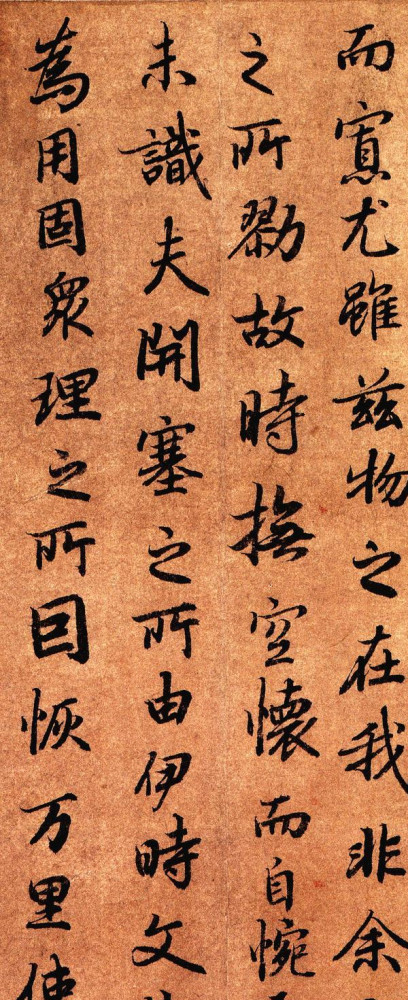 而寡尤雖兹物之在我非余
之所勠故時撫空懷而自惋
未識夫開塞之所由伊時文
為用固衆理之所因恢万里使